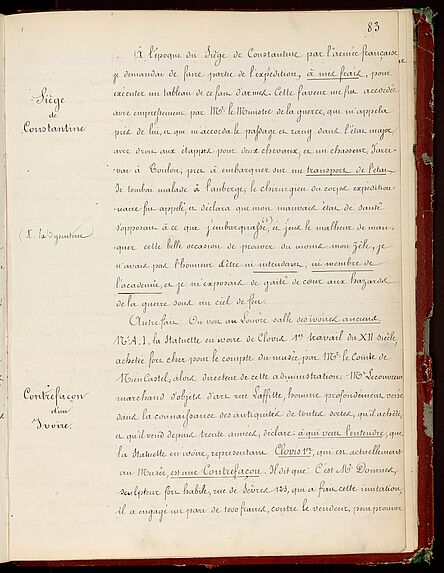 83
À l'époque du Siége de Constantine par l'armée française
je demandai de faire partie de l'expédition, à mes frais, pour
exécuter un tableau de ce fait d'armes. Cette faveur me fut accordée
Siége
de
Constantine
avec empressement par Mr. le Ministre de la guerre, qui m'appela
près de lui, et qui m'accorda le passage et rang dans l'état major
avec droit aux étapes pour deux chevaux, et un chasseur. J'arri-
vai à Toulon, prêt à embarquer sur un transport de l'état
Je tombai malade à l'auberge, le chirurgien du corps expédition-
naire fut appelé et déclara que mon mauvais état de santé
s'opposait à ce que j'embarquasse (1) et j'eus le malheur de man-
la dyssenterie
quer cette belle occasion de prouver du moins mon zèle, je
n'avais pas l'honneur d'être ni intendant, ni membre de
l'académie, et je m'exposais de gaité de cœur aux hazards
de la guerre sous un ciel de feu.
Autre fait. On voit au Louvre salle des ivoires anciens
No. A.1, la Statuette en ivoire de Clovis 1er travail du XII siècle,
achetée fort cher pour le compte du musée par Mr. le Comte de
Contrefaçon
d'un
Ivoire.
Nieu Castel, alors directeur de cette administration. Mr. Lecouvreur
marchand d'objets d'art rue Laffitte, homme profondément versé
dans la connaissance des antiquités de toutes sortes, qu'il achète,
et qu'il vend depuis trente années, déclare: à qui veut l'entendre, que
la Statuette en ivoire, représentant Clovis 1er, qui est actuellement
au Musée, est une Contrefaçon. Il dit que: C'est Mr
sculpteur fort habile, rue de Sèvres 123, qui a fait cette imitation,
il a engagé un pari de 1000 francs, contre le vendeur, pour prouver